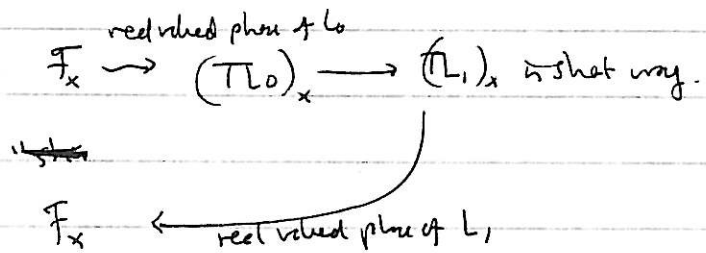 real valued phase of L₀
ℱₓ ⇝ (TL₀)ₓ ⟶ (TL₁)ₓ in short way.
ℱₓ ⟵ real valued phase of L₁